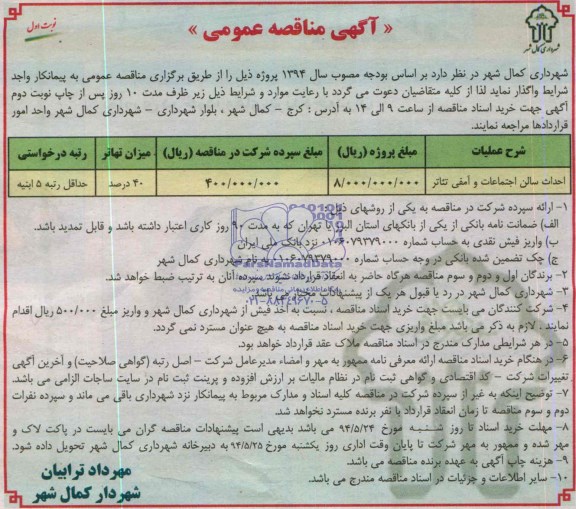 نوبت اول
« آگهی مناقصه عمومی »
شهرداری کمال شهر
شهرداری کمال شهر در نظر دارد بر اساس بودجه مصوب سال ۱۳۹۴ پروژه ذیل را از طریق برگزاری مناقصه عمومی به پیمانکار واجد
شرایط واگذار نماید لذا از کلیه متقاضیان دعوت می گردد با رعایت موارد و شرایط ذیل زیر ظرف مدت ۱۰ روز پس از چاپ نوبت دوم
آگهی جهت خرید اسناد مناقصه از ساعت ۹ الی ۱۴ به آدرس : کرج – کمال شهر ، بلوار شهرداری – شهرداری کمال شهر واحد امور
قراردادها مراجعه نمایند.
شرح عملیات مبلغ پروژه (ریال) مبلغ سپرده شرکت در مناقصه (ریال) میزان تهاتر رتبه درخواستی
احداث سالن اجتماعات و آمفی تئاتر ۸/۰۰۰/۰۰۰/۰۰۰ ۴۰۰/۰۰۰/۰۰۰ ۴۰ درصد حداقل رتبه ۵ ابنیه
۱- ارائه سپرده شرکت در مناقصه به یکی از روشهای ذیل
الف) ضمانت نامه بانکی از یکی از بانکهای استان البرز یا تهران که به مدت ۹۰ روز کاری اعتبار داشته باشد و قابل تمدید باشد.
ب) واریز فیش نقدی به حساب شماره ۰۱۰۶۰۷۹۳۷۹۰۰۰ نزد بانک ملی ایران
ج) چک تضمین شده بانکی در وجه حساب شماره ۰۱۰۶۰۷۹۳۷۹۰۰۰ به نام شهرداری کمال شهر
۲- برندگان اول و دوم و سوم مناقصه هرگاه حاضر به انعقاد قرارداد نشوند سپرده آنان به ترتیب ضبط خواهد شد.
۳- شهرداری کمال شهر در رد یا قبول هر یک از پیشنهادات مختار می باشد.
۴- شرکت کنندگان می بایست جهت خرید اسناد مناقصه ، نسبت به اخذ فیش از شهرداری کمال شهر و واریز مبلغ ۵۰۰/۰۰۰ ریال اقدام
نمایند . لازم به ذکر می باشد مبلغ واریزی جهت خرید اسناد مناقصه به هیچ عنوان مسترد نمی گردد.
۵- در هر شرایطی مدارک مندرج در اسناد مناقصه ملاک عقد قرارداد خواهد بود.
۶- در هنگام خرید اسناد مناقصه ارائه معرفی نامه ممهور به مهر و امضاء مدیرعامل شرکت – اصل رتبه (گواهی صلاحیت) و آخرین آگهی
تغییرات شرکت – کد اقتصادی و گواهی ثبت نام در نظام مالیات بر ارزش افزوده و پرینت ثبت نام در سایت ساجات الزامی می باشد.
۷- توضیح اینکه به غیر از سپرده شرکت در مناقصه کلیه اسناد و مدارک مربوط به پیمانکار نزد شهرداری باقی می ماند و سپرده نفرات
دوم و سوم مناقصه تا زمان انعقاد قرارداد با نفر برنده مسترد نخواهد شد.
۸- مهلت خرید اسناد تا روز شنبه مورخ ۹۴/۵/۲۴ می باشد بدیهی است پیشنهادات مناقصه گران می بایست در پاکت لاک و
مهر شده و ممهور به مهر شرکت تا پایان وقت اداری روز یکشنبه مورخ ۹۴/۵/۲۵ به دبیرخانه شهرداری کمال شهر تحویل داده شود.
۹- هزینه چاپ آگهی به عهده برنده مناقصه می باشد.
۱۰- سایر اطلاعات و جزئیات در اسناد مناقصه مندرج می باشد.
مهرداد ترابیان
شهردار کمال شهر
ParsNamadData